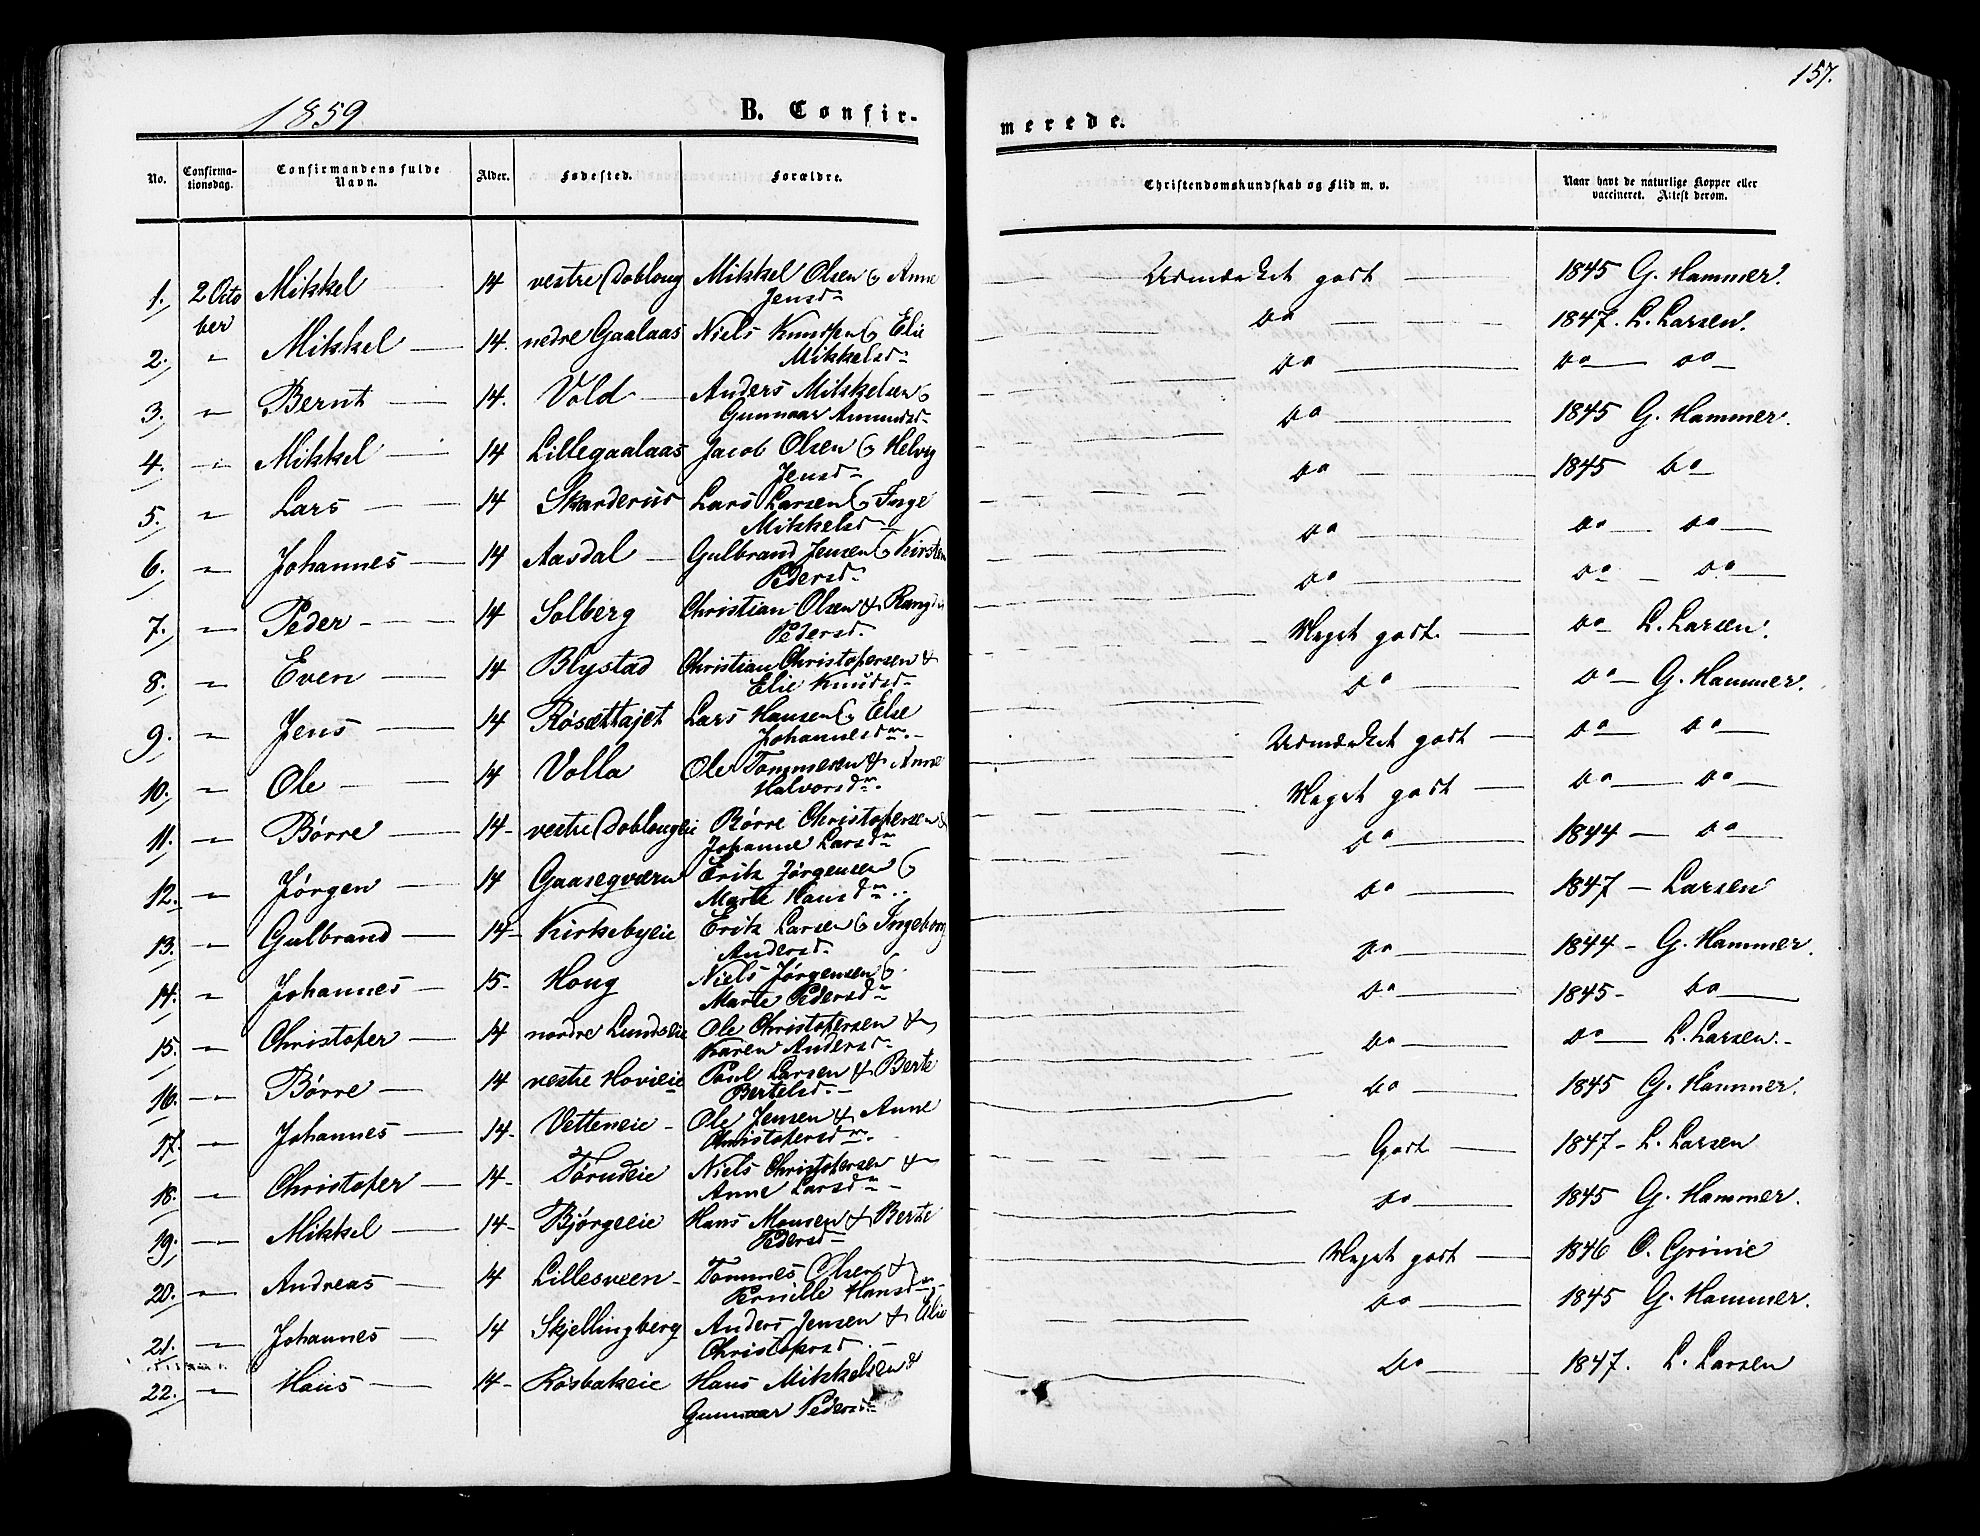 157.
1859
B. Confir-
merede.
No.
Confirma-
tionsdag.
Confirmandens fulde
Navn.
Alder.
Fødested.
Forældre.
Christendomskundskab og Flid m. v.
Naar havt de naturlige Kopper eller
vaccineret. Attest derom.
1. 2 Octo Mikkel 14 vestre Dobloug Mikkel Olsen & Anne Udmærket godt 1845 G. Hammer.
ber Jensd
2. " Mikkel 14. nedre Gaalaas Niels Knudsen & Elie do 1847. L. Larsen.
Mikkelsd
3. " Bernt 14. Vold Anders Mikkelsen & do do do
Gunnaar Amundsd
4. " Mikkel 14 Lillegaalaas Jacob Olsen & Helvig do 1845 G. Hammer.
Jensd
5. " Lars 14 Skarderud Lars Larsen & Inge do 1845 do
Mikkelsd
6. " Johannes 14 Aasdal Gulbrand Jensen & Kirsten do do do
Pedersd
7. " Peder 14 Solberg Christian Olsen & do do do
Pedersd.
8. " Even 14 Blystad Christian Christophersen & Meget godt do L. Larsen.
Elie Knudsd
9. " Jens 14 Røsættajet Lars Hansen & Else do do G. Hammer.
Johannesd
10. " Ole 14 Volla Ole Tommesen & Anne Udmærket godt do do
Halvorsd
11. " Børre 14 vestre Doblougeie Børre Christophersen & Meget godt do do
Johanne Larsd
12. " Jørgen 14 Gaasegværn Erik Jørgensen & do 1844 do
Marte Hansd
13. " Gulbrand 14 Kirkebyeie Erik Larsen & Ingeborg do 1847 Larsen
Andersd
14. " Johannes 15 Houg Niels Jørgensen & do 1844 G. Hammer.
Marte Pedersd
15. " Christopher 14 nordre Lundseie Ole Christophersen & do 1845 do
Karen Andersd
16. " Børre 14 vestre Hovieie Poul Larsen & Berte do do L. Larsen.
Bertelsd
17. " Johannes 14 Vetteneie Ole Jensen & Anne do 1845 G. Hammer.
Christophersd
18. " Christopher 14 Torudeie Niels Christophersen & Godt 1847 L. Larsen
Anne Larsd
19. " Mikkel 14 Bjørgeeie Hans Monsen & Berte do 1845 G. Hammer.
Pedersd
20. " Andreas 14 Lillesveen Tommes Olsen & Meget godt 1846 O. Grinie
Pernille Hansd
21. " Johannes 14 Skjellingberg Anders Jensen & Elie do 1845 G. Hammer.
Christophersd
22. " Hans 14 Røsbakeie Hans Mikkelsen & do 1847. L. Larsen
Gunnaar Pedersd